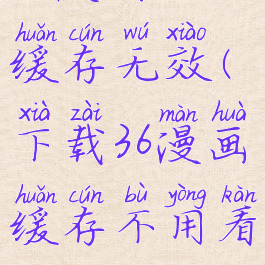 huǎn cún wú xiào
缓存无效(
xià zài màn huà
下载36漫画
huǎn cún bù yòng kàn
缓存不用看